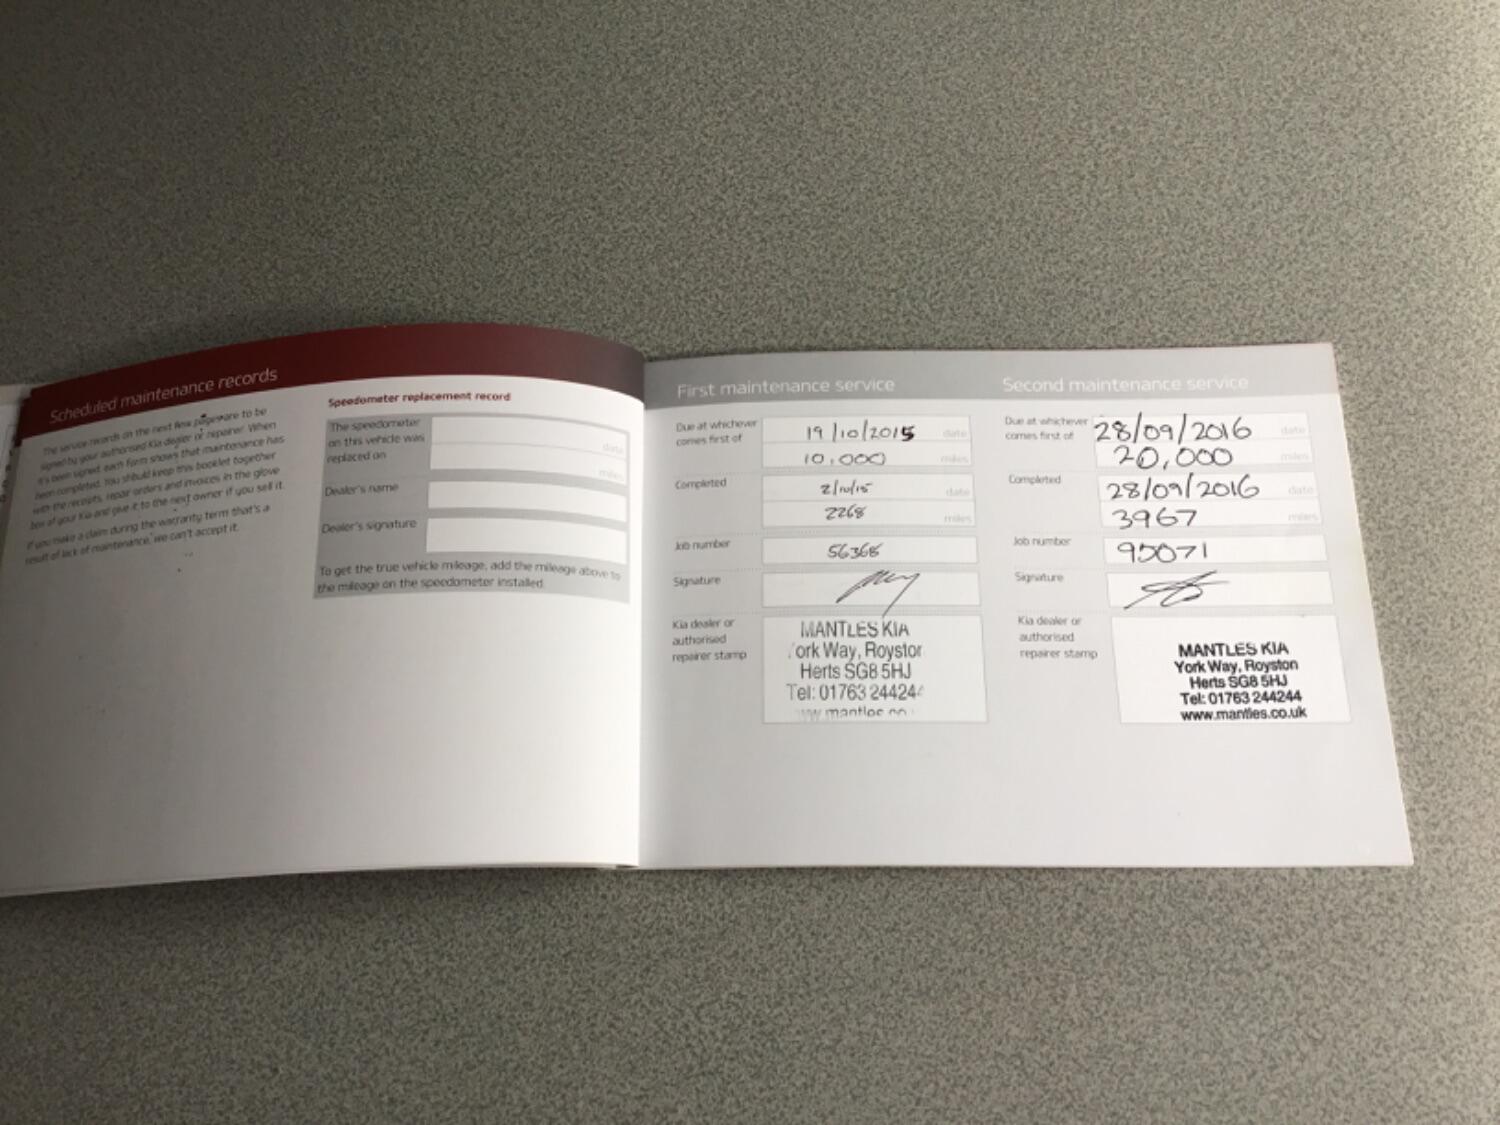 Scheduled maintenance records
The service records on the next few pages are to be
signed by your authorised Kia dealer or repairer. When
it's been signed, each form shows that maintenance has
been completed. You should keep this booklet together
with the receipts, repair orders and invoices in the glove
box of your Kia and give it to the next owner if you sell it.
If you make a claim during the warranty term that's a
result of lack of maintenance, we can't accept it.
Speedometer replacement record
The speedometer
on this vehicle was
replaced on
date
miles
Dealer's name
Dealer's signature
To get the true vehicle mileage, add the mileage above to
the mileage on the speedometer installed.
First maintenance service
Due at whichever
comes first of
19/10/2015 date
10,000 miles
Completed
2/10/15 date
2268 miles
Job number
56368
Signature
Kia dealer or
authorised
repairer stamp
MANTLES KIA
ork Way, Roystor
Herts SG8 5HJ
Tel: 01763 24424
www.mantles.co
Second maintenance service
Due at whichever
comes first of
28/09/2016 date
20,000 miles
Completed
28/09/2016 date
3967 miles
Job number
95071
Signature
Kia dealer or
authorised
repairer stamp
MANTLES KIA
York Way, Royston
Herts SG8 5HJ
Tel: 01763 244244
www.mantles.co.uk